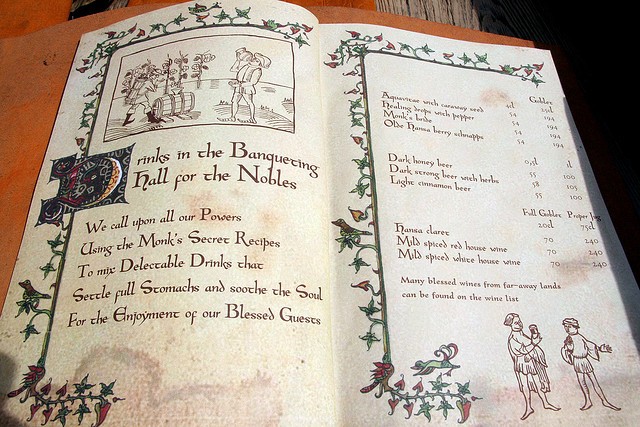 Drinks in the Banqueting
Hall for the Nobles
We call upon all our Powers
Using the Monk's Secret Recipes
To mix Delectable Drinks that
Settle full Stomachs and soothe the Soul
For the Enjoyment of our Blessed Guests
Goblet
4cl 20cl
Aquavitae with caraway seed 54 194
Healing drops with pepper 54 194
Monk's bride 54 194
Olde Hansa berry schnapps 54 194
0,5l 1l
Dark honey beer 55 100
Dark strong beer with herbs 58 105
Light cinnamon beer 55 100
Full Goblet Proper Jug
20cl 75cl
Hansa claret 70 240
Mild spiced red house wine 70 240
Mild spiced white house wine 70 240
Many blessed wines from far-away lands
can be found on the wine list